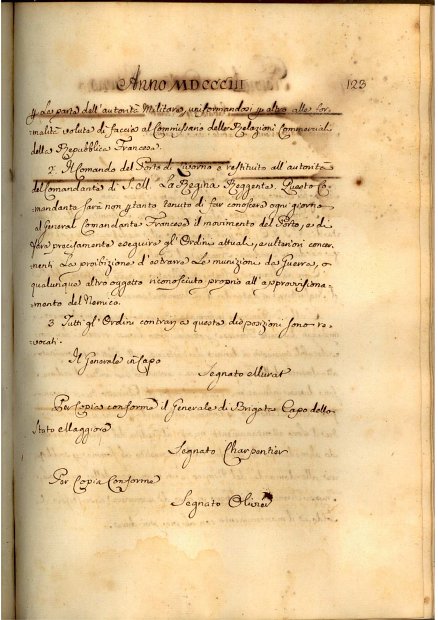 Anno MDCCCIII 123
p Le parte dell'autorità Militare, uniformandosi p altro alle for-
malità volute di faccia al Commissario delle Relazioni Commerciali
della Repubblica Francese.
2. Il Comando del Porto di Livorno è restituito all'autorità
del Comandante di S. M. La Regina Reggente. Questo Co-
mandante sarà non ptanto tenuto di far conoscere ogni giorno
al General Comandante Francese il movimento del Porto, e di
fare precisamente eseguire gl'Ordini attuali, e ulteriori concer-
nenti La proibizione d'estrarre Le munizioni da Guerra, o
qualunque altro oggetto riconosciuto proprio all'approvisiona-
mento del Nemico.
3 Tutti gl'Ordini contrarj a queste disposizioni sono re-
vocati.
Il Generale in Capo
Segnato Murat
Per Copia conforme il Generale di Brigata Capo dello
Stato Maggiore
Segnato Charpentier
Per Copia Conforme
Segnato Olivier